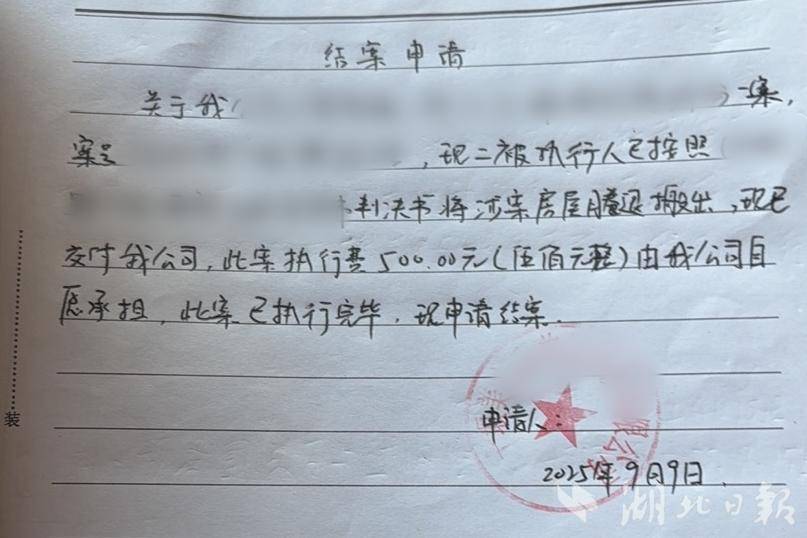 结案申请
关于我（）一案，
案号，现二被执行人已按照
判决书将涉案房屋腾退搬出，现已
交付我公司，此案执行费500.00元（伍佰元整）由我公司自
愿承担，此案已执行完毕，现申请结案。
申请人：
限公
2025年9月9日
装
湖北日报